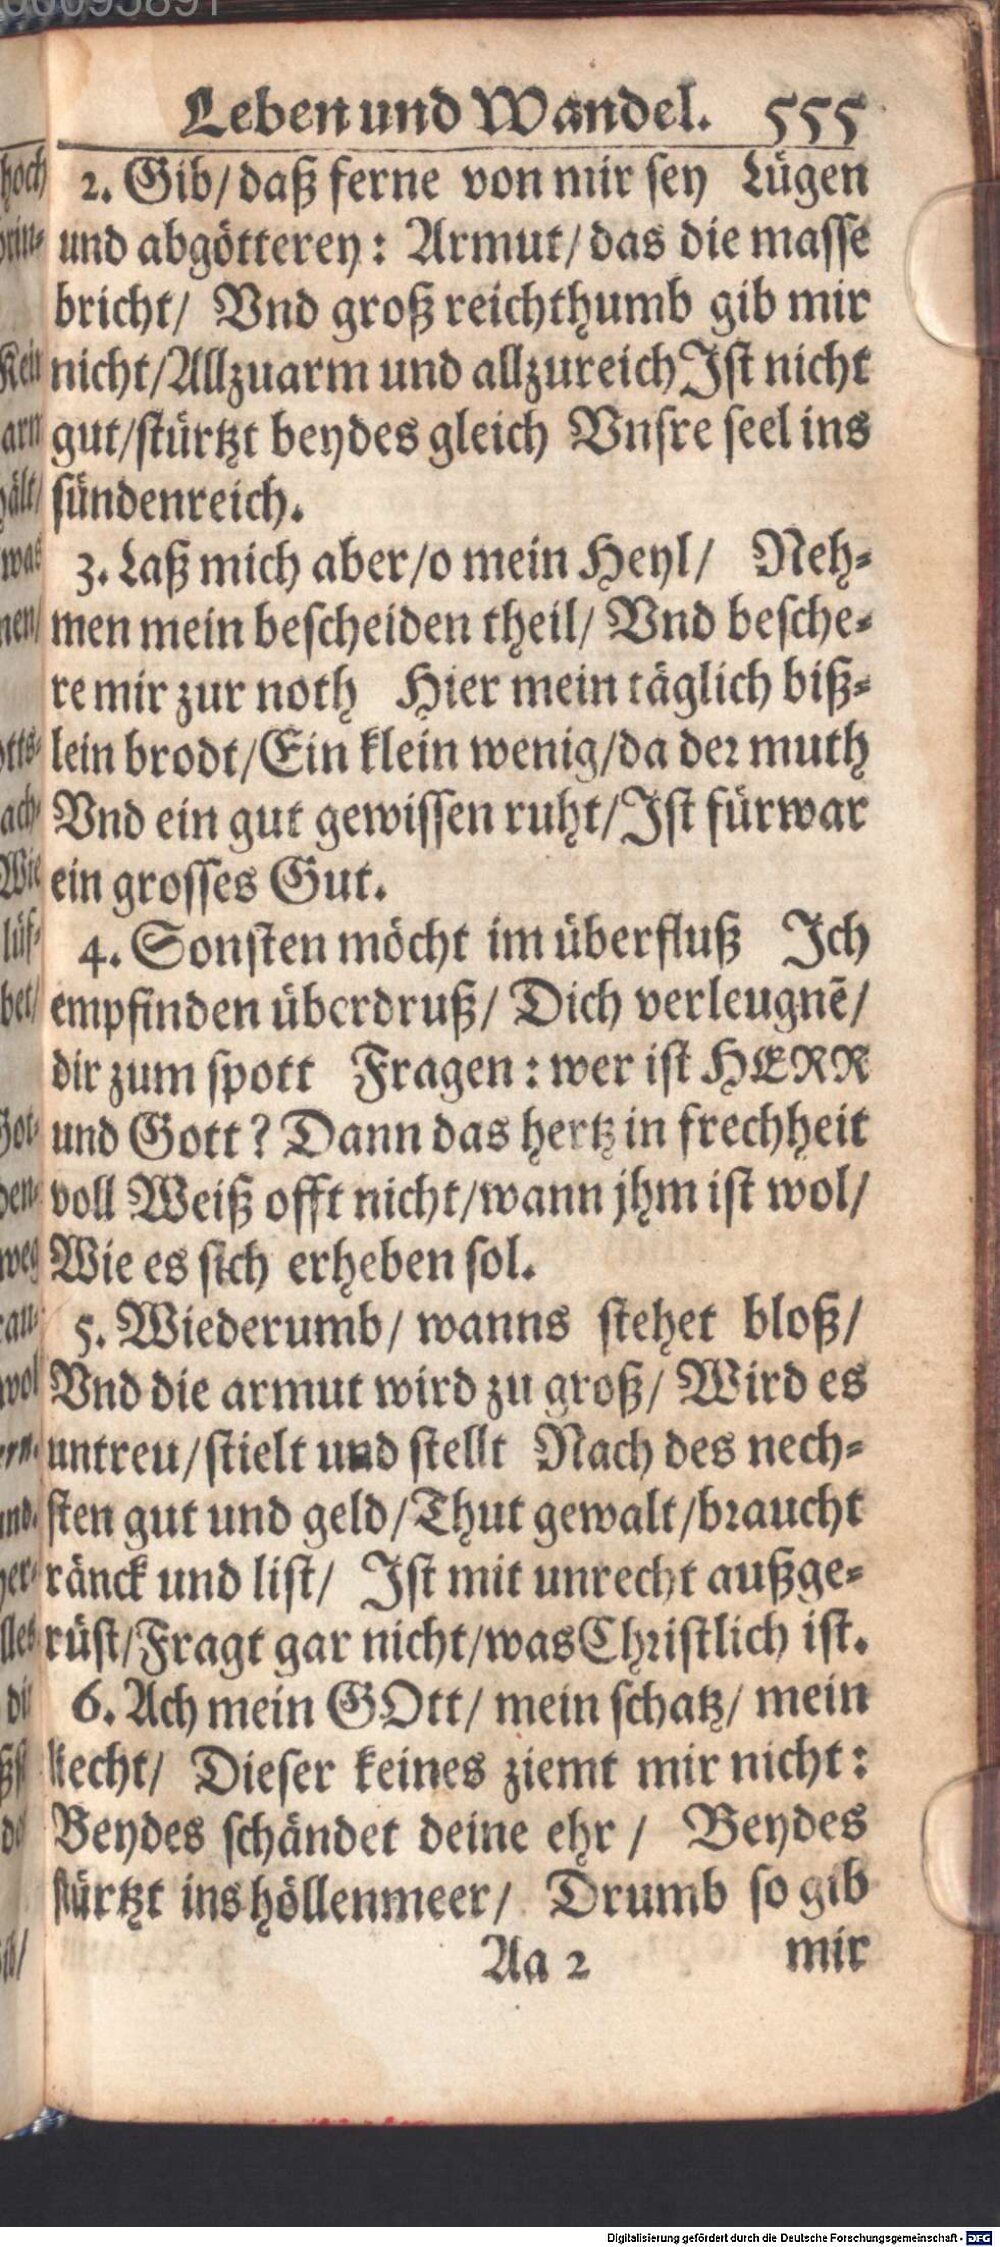 Leben und Wandel. 555
2. Gib/ daß ferne von mir sey Lügen
und abgötterey: Armut/ das die masse
bricht/ Vnd groß reichthumb gib mir
nicht/Allzuarm und allzureich Ist nicht
gut/stürtzt beydes gleich Vnsre seel ins
sündenreich.
3. Laß mich aber/o mein Heyl/ Neh-
men mein bescheiden theil/ Vnd besche-
re mir zur noth Hier mein täglich biß-
lein brodt/Ein klein wenig/da der muth
Vnd ein gut gewissen ruht/Ist fürwar
ein grosses Gut.
4. Sonsten möcht im überfluß Ich
empfinden überdruß/ Dich verleugnē/
dir zum spott Fragen: wer ist HERR
und Gott? Dann das hertz in frechheit
voll Weiß offt nicht/wann jhm ist wol/
Wie es sich erheben sol.
5. Wiederumb/ wanns stehet bloß/
Vnd die armut wird zu groß/ Wird es
untreu/stielt und stellt Nach des nech-
sten gut und geld/Thut gewalt/braucht
ränck und list/ Ist mit unrecht außge-
rüst/Fragt gar nicht/was Christlich ist.
6. Ach mein GOtt/ mein schatz/ mein
liecht/ Dieser keines ziemt mir nicht:
Beydes schändet deine ehr/ Beydes
stürtzt ins höllenmeer/ Drumb so gib
Aa 2 mir
Digitalisierung gefördert durch die Deutsche Forschungsgemeinschaft - DFG